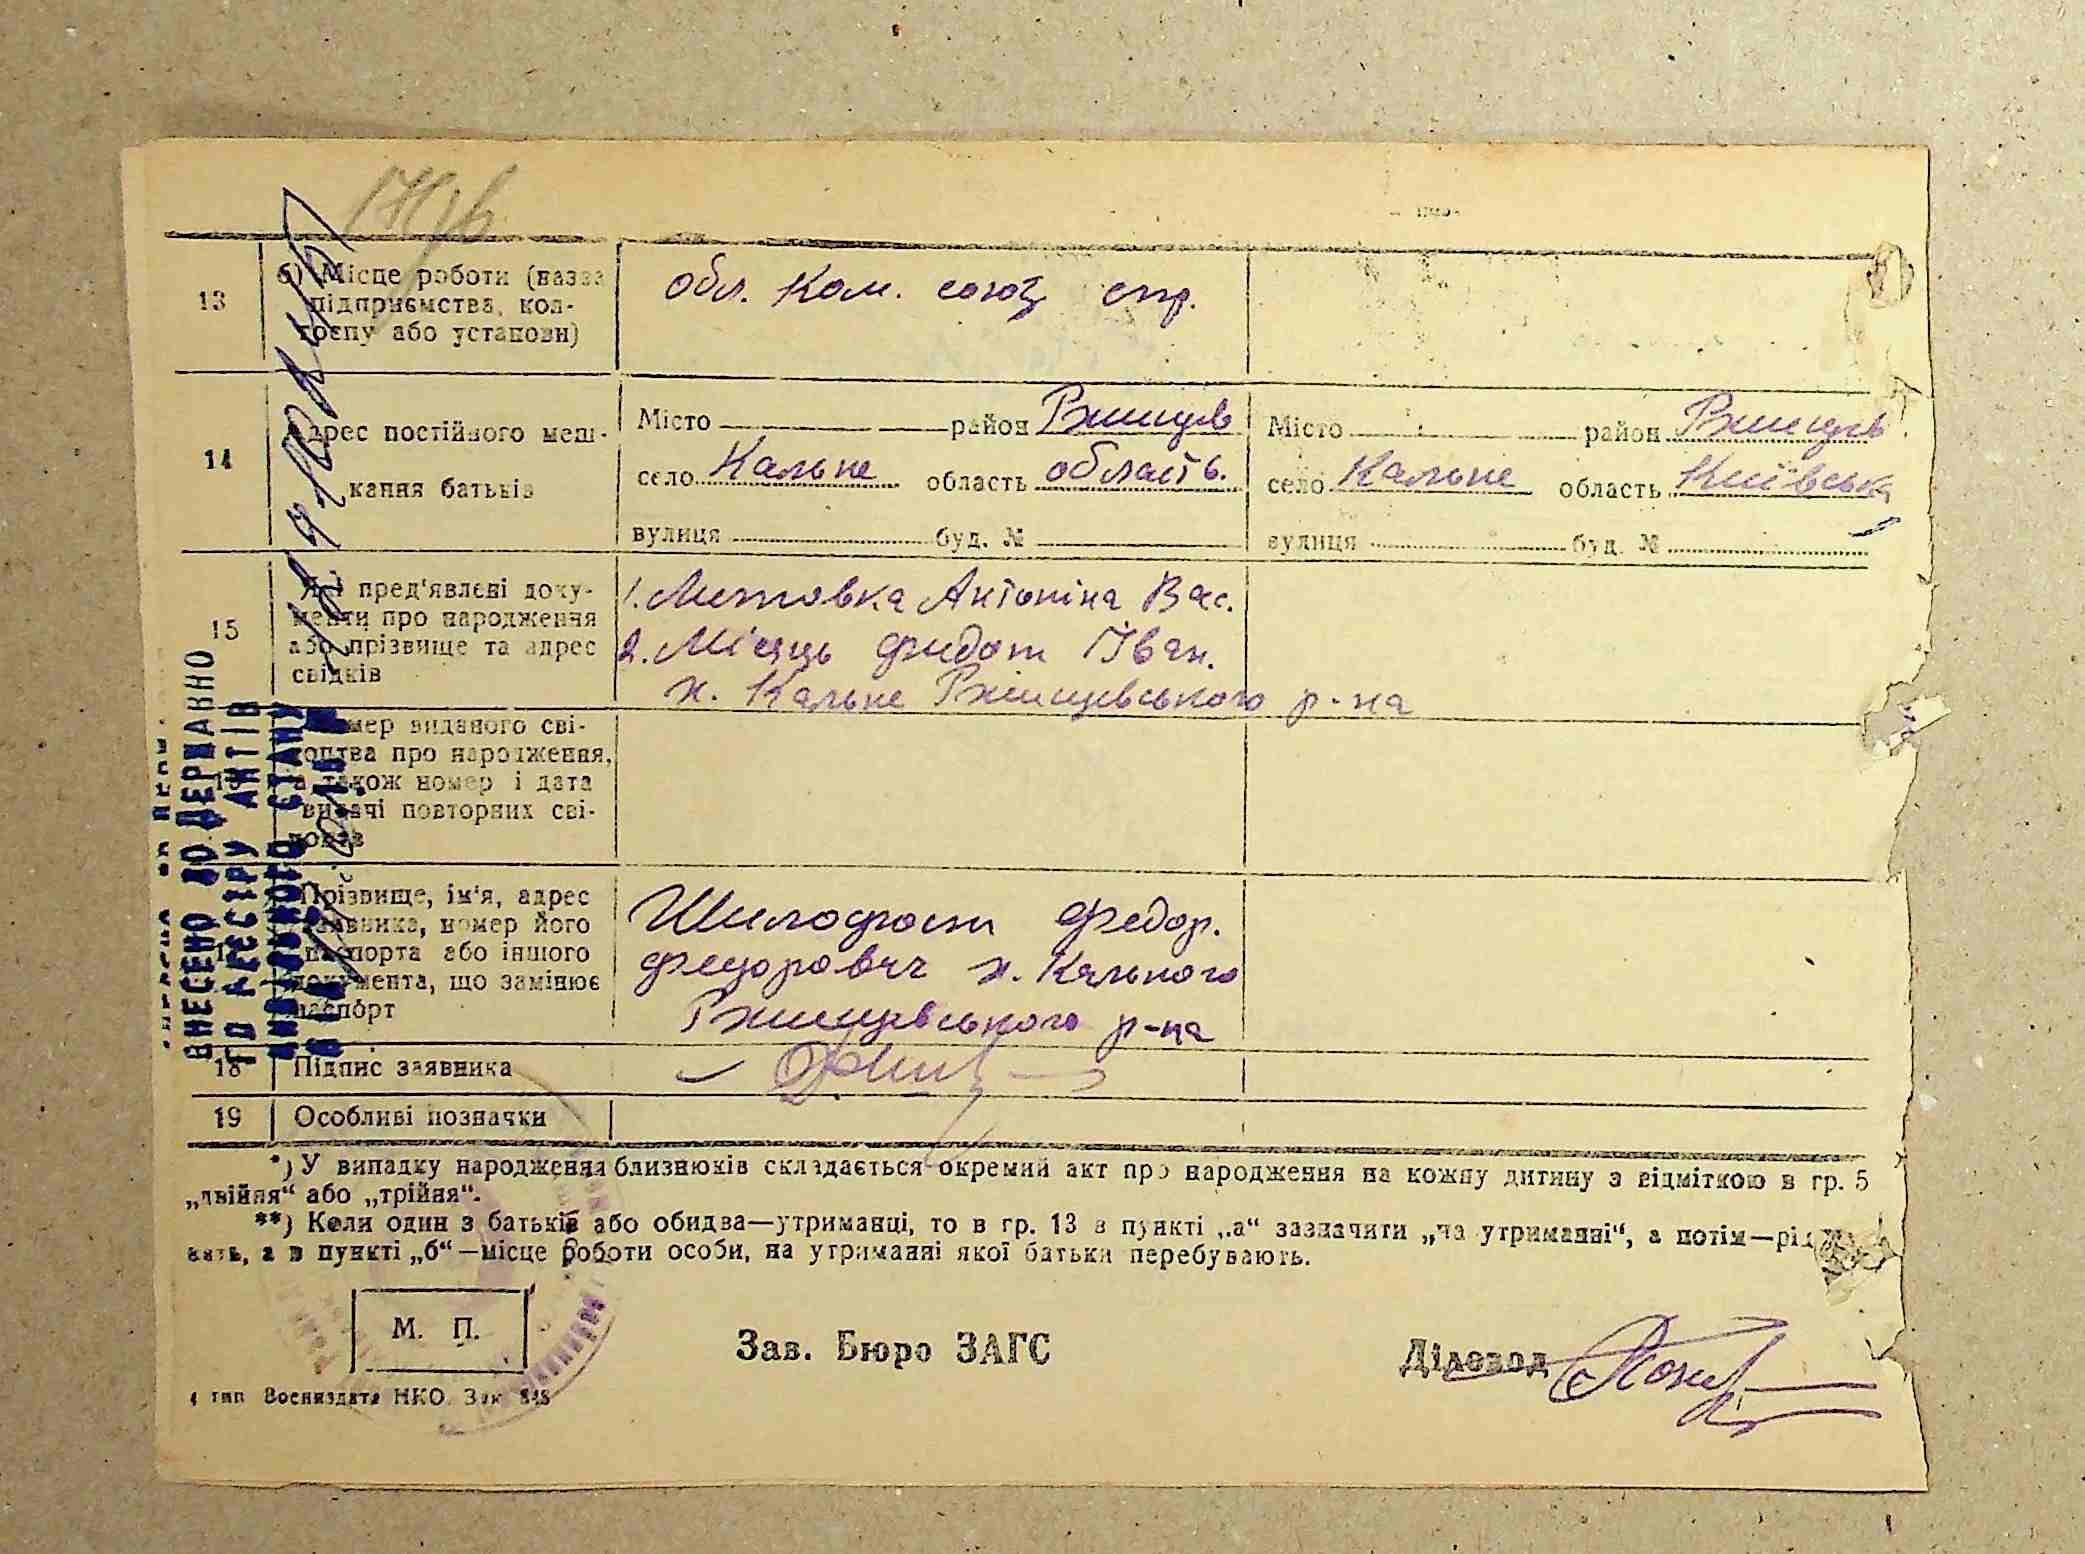 13
б) Місце роботи (назва
підприємства, кол-
госпу або установи)
обл. Ком. союз спр.
14
Адрес постійного меш-
кання батьків
Місто район Ржищів
село Кальне область область.
вулиця буд. №
Місто район Ржищів
село Кальне область Київська
вулиця буд. №
15
Які пред'явлені доку-
менти про народження
або прізвище та адрес
свідків
1. Литовка Антоніна Вас.
2. Місяць Федот Іван.
х. Кальне Ржищевського р-на
Номер виданого сві-
доцтва про народження,
а також номер і дата
видачі повторних сві-
доцтв
Прізвище, ім'я, адрес
заявника, номер його
паспорта або іншого
документа, що замінює
паспорт
Шилофост Федор.
Федорович х. Кального
Ржищевського р-на
18
Підпис заявника
19
Особливі позначки
*) У випадку народження близнюків складається окремий акт про народження на кожну дитину з відміткою в гр. 5
„двійня“ або „трійня“.
**) Коли один з батьків або обидва—утриманці, то в гр. 13 в пункті „а“ зазначити „на утриманні“, а потім—
а в пункті „б“—місце роботи особи, на утриманні якої батьки перебувають.
М. П.
Зав. Бюро ЗАГС
Діловод
4 тип Воениздата НКО. Зак 848
ВНЕСЕНО ДО ДЕРЖАВНО
ГО РЕЄСТРУ АКТІВ
ЦИВІЛЬНОГО СТАНУ